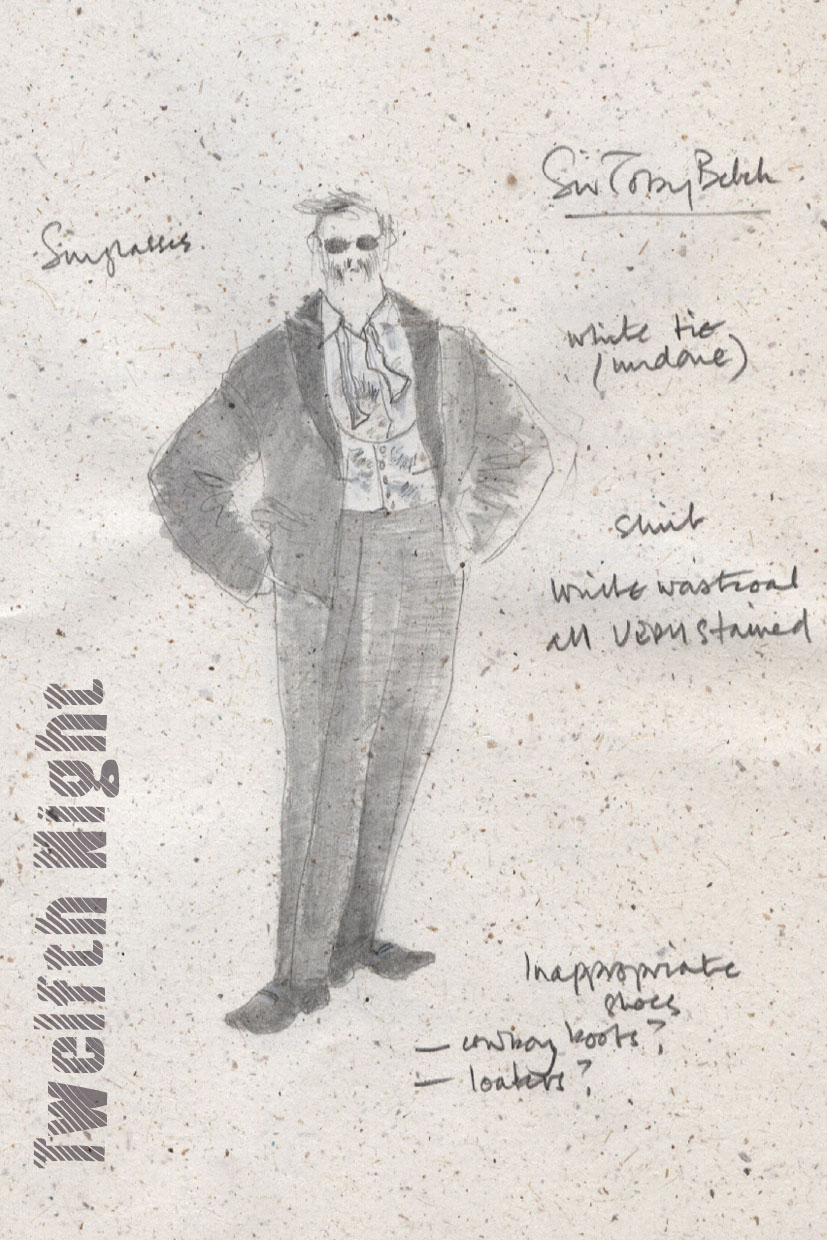 Sir Toby Belch
Sunglasses
white tie
(undone)
Shirt
White wastcoat
all VERY stained
Inappropriate
shoes
— cowboy boots?
— loafers?
Twelfth Night